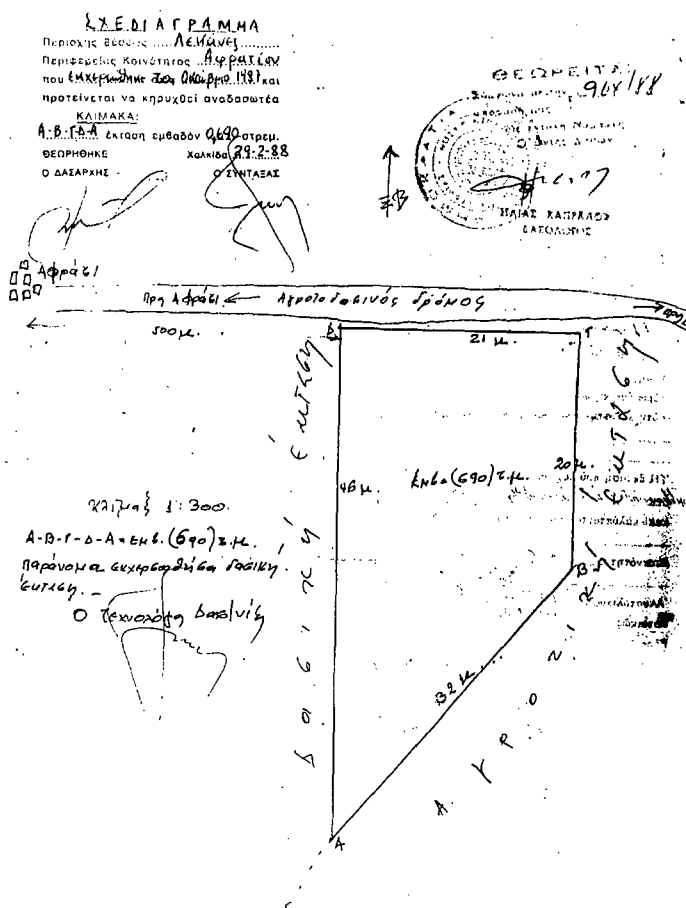 ΣΧΕΔΙΑΓΡΑΜΜΑ
Περιοχής θέσεως Λεκάνες
Περιφερείας Κοινότητος Αφρατίου
που εκχερσώθηκε τον Οκτώβριο 1987 και
προτείνεται να κηρυχθεί αναδασωτέα
ΚΛΙΜΑΚΑ:
Α-Β-Γ-Δ-Α έκταση εμβαδόν 0,690 στρεμ.
ΘΕΩΡΗΘΗΚΕ Χαλκίδα 29-2-88
Ο ΔΑΣΑΡΧΗΣ Ο ΣΥΝΤΑΞΑΣ
ΘΕΩΡΕΙΤΑΙ
968/88
ΗΛΙΑΣ ΚΑΠΡΑΛΟΣ
ΔΑΣΟΛΟΓΟΣ
Β
Αφράτι
Προς Αφράτι ← Αγροτοδασικός δρόμος
500 μ.
Γ
21 μ.
Δασική έκταση
46 μ.
Εμβ. (690) τ.μ.
20 μ.
Β
32 μ.
Α
Αγρο
έκταση
Κλίμαξ 1:300.
Α-Β-Γ-Δ-Α = Εμβ. (690) τ.μ.
παράνομα εκχερσωθήσα δασική
έκταση.-
Ο Τεχνολόγος Δασ/νίας